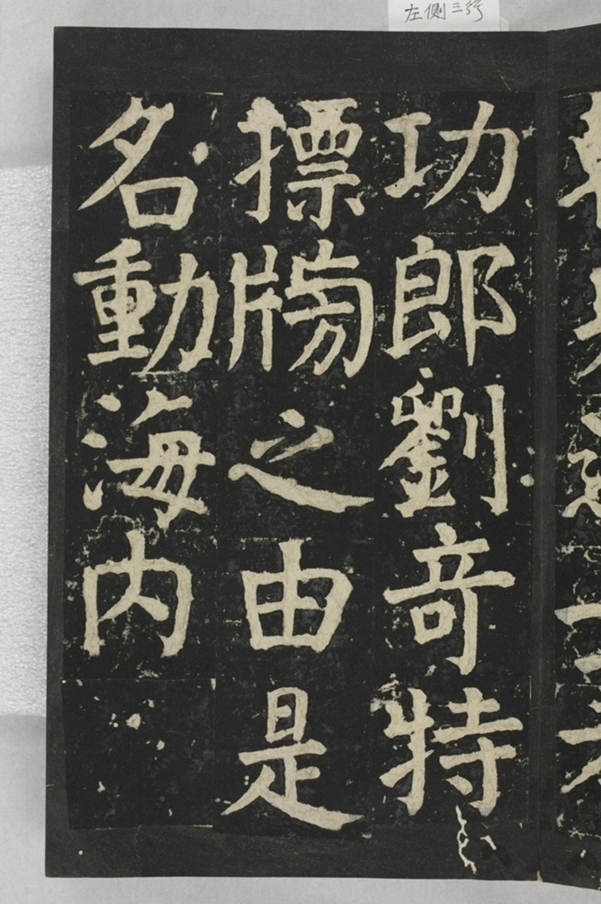 左側三行
功郎劉竒特
摽牓之由是
名動海内